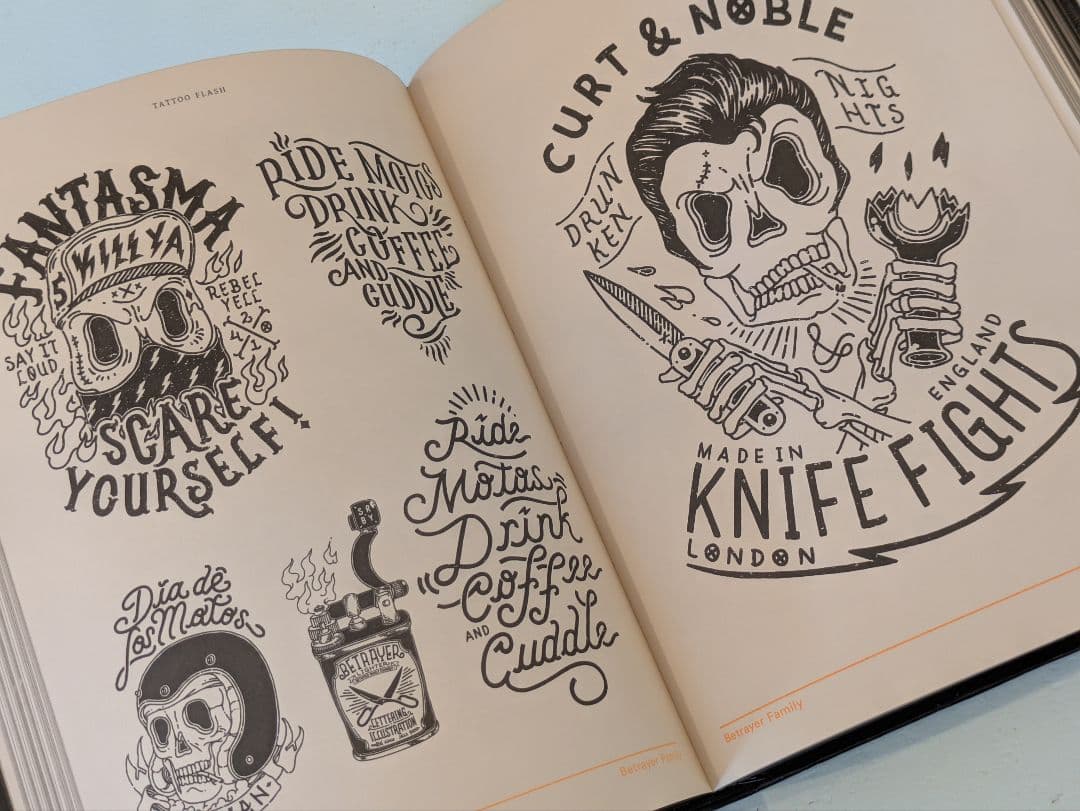 TATTOO FLASH
FANTASMA
KILLYA
SAY IT
LOUD
REBEL
YELL
SCARE
YOURSELF!
RIDE MOTOS
DRINK
COFFEE
AND
CUDDLE
Ride
Motos
Drink
Coffee
AND
Cuddle
Día de
los Motos
BETRAYER
LETTERING
ILLUSTRATION
Betrayer Family
CURT & NOBLE
DRUN
KEN
NIG
HTS
&
MADE IN
ENGLAND
KNIFE FIGHTS
LONDON
Betrayer Family